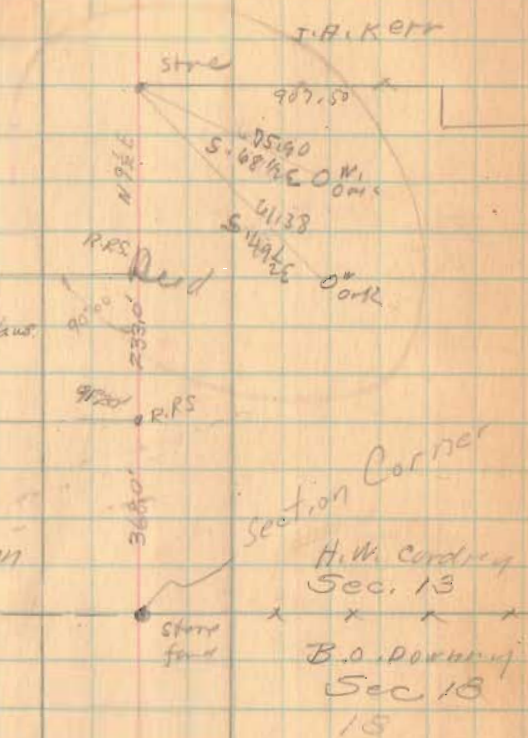 J.A. Kerr
stone
907.50
75.90
S. 68 1/2 E
W.
Oak
N 9 1/2 E
41.38
S 49 1/2 E
W
Oak
R.RS.
Reed
90°00'
233.0'
91°20'
R.RS
368.0'
Section Corner
H.W.
Sec. 13
stone
found
B.O. Downing
Sec 18
18